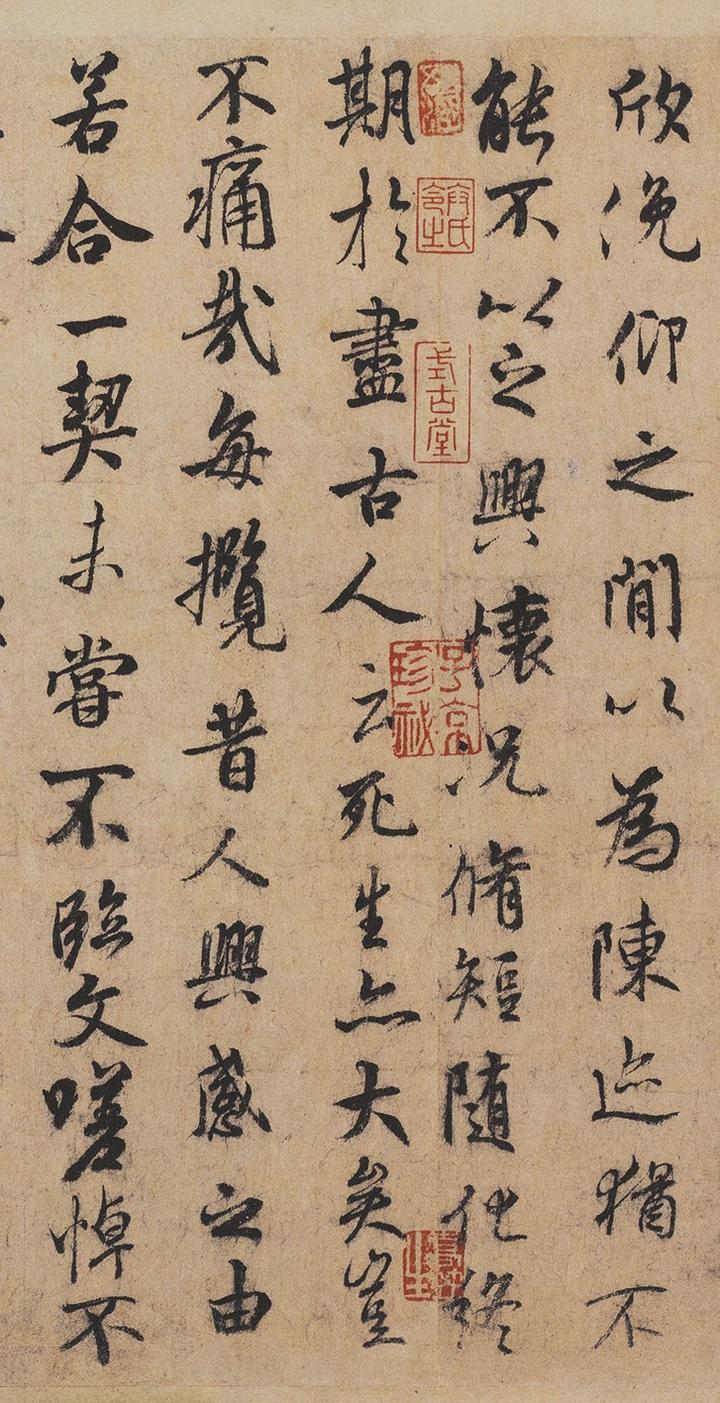 欣俛仰之閒以為陳迹猶不
能不以之興懷況脩短隨化終
期於盡古人云死生亦大矣豈
不痛哉每攬昔人興感之由
若合一契未嘗不臨文嗟悼不
式古堂
子京珍祕